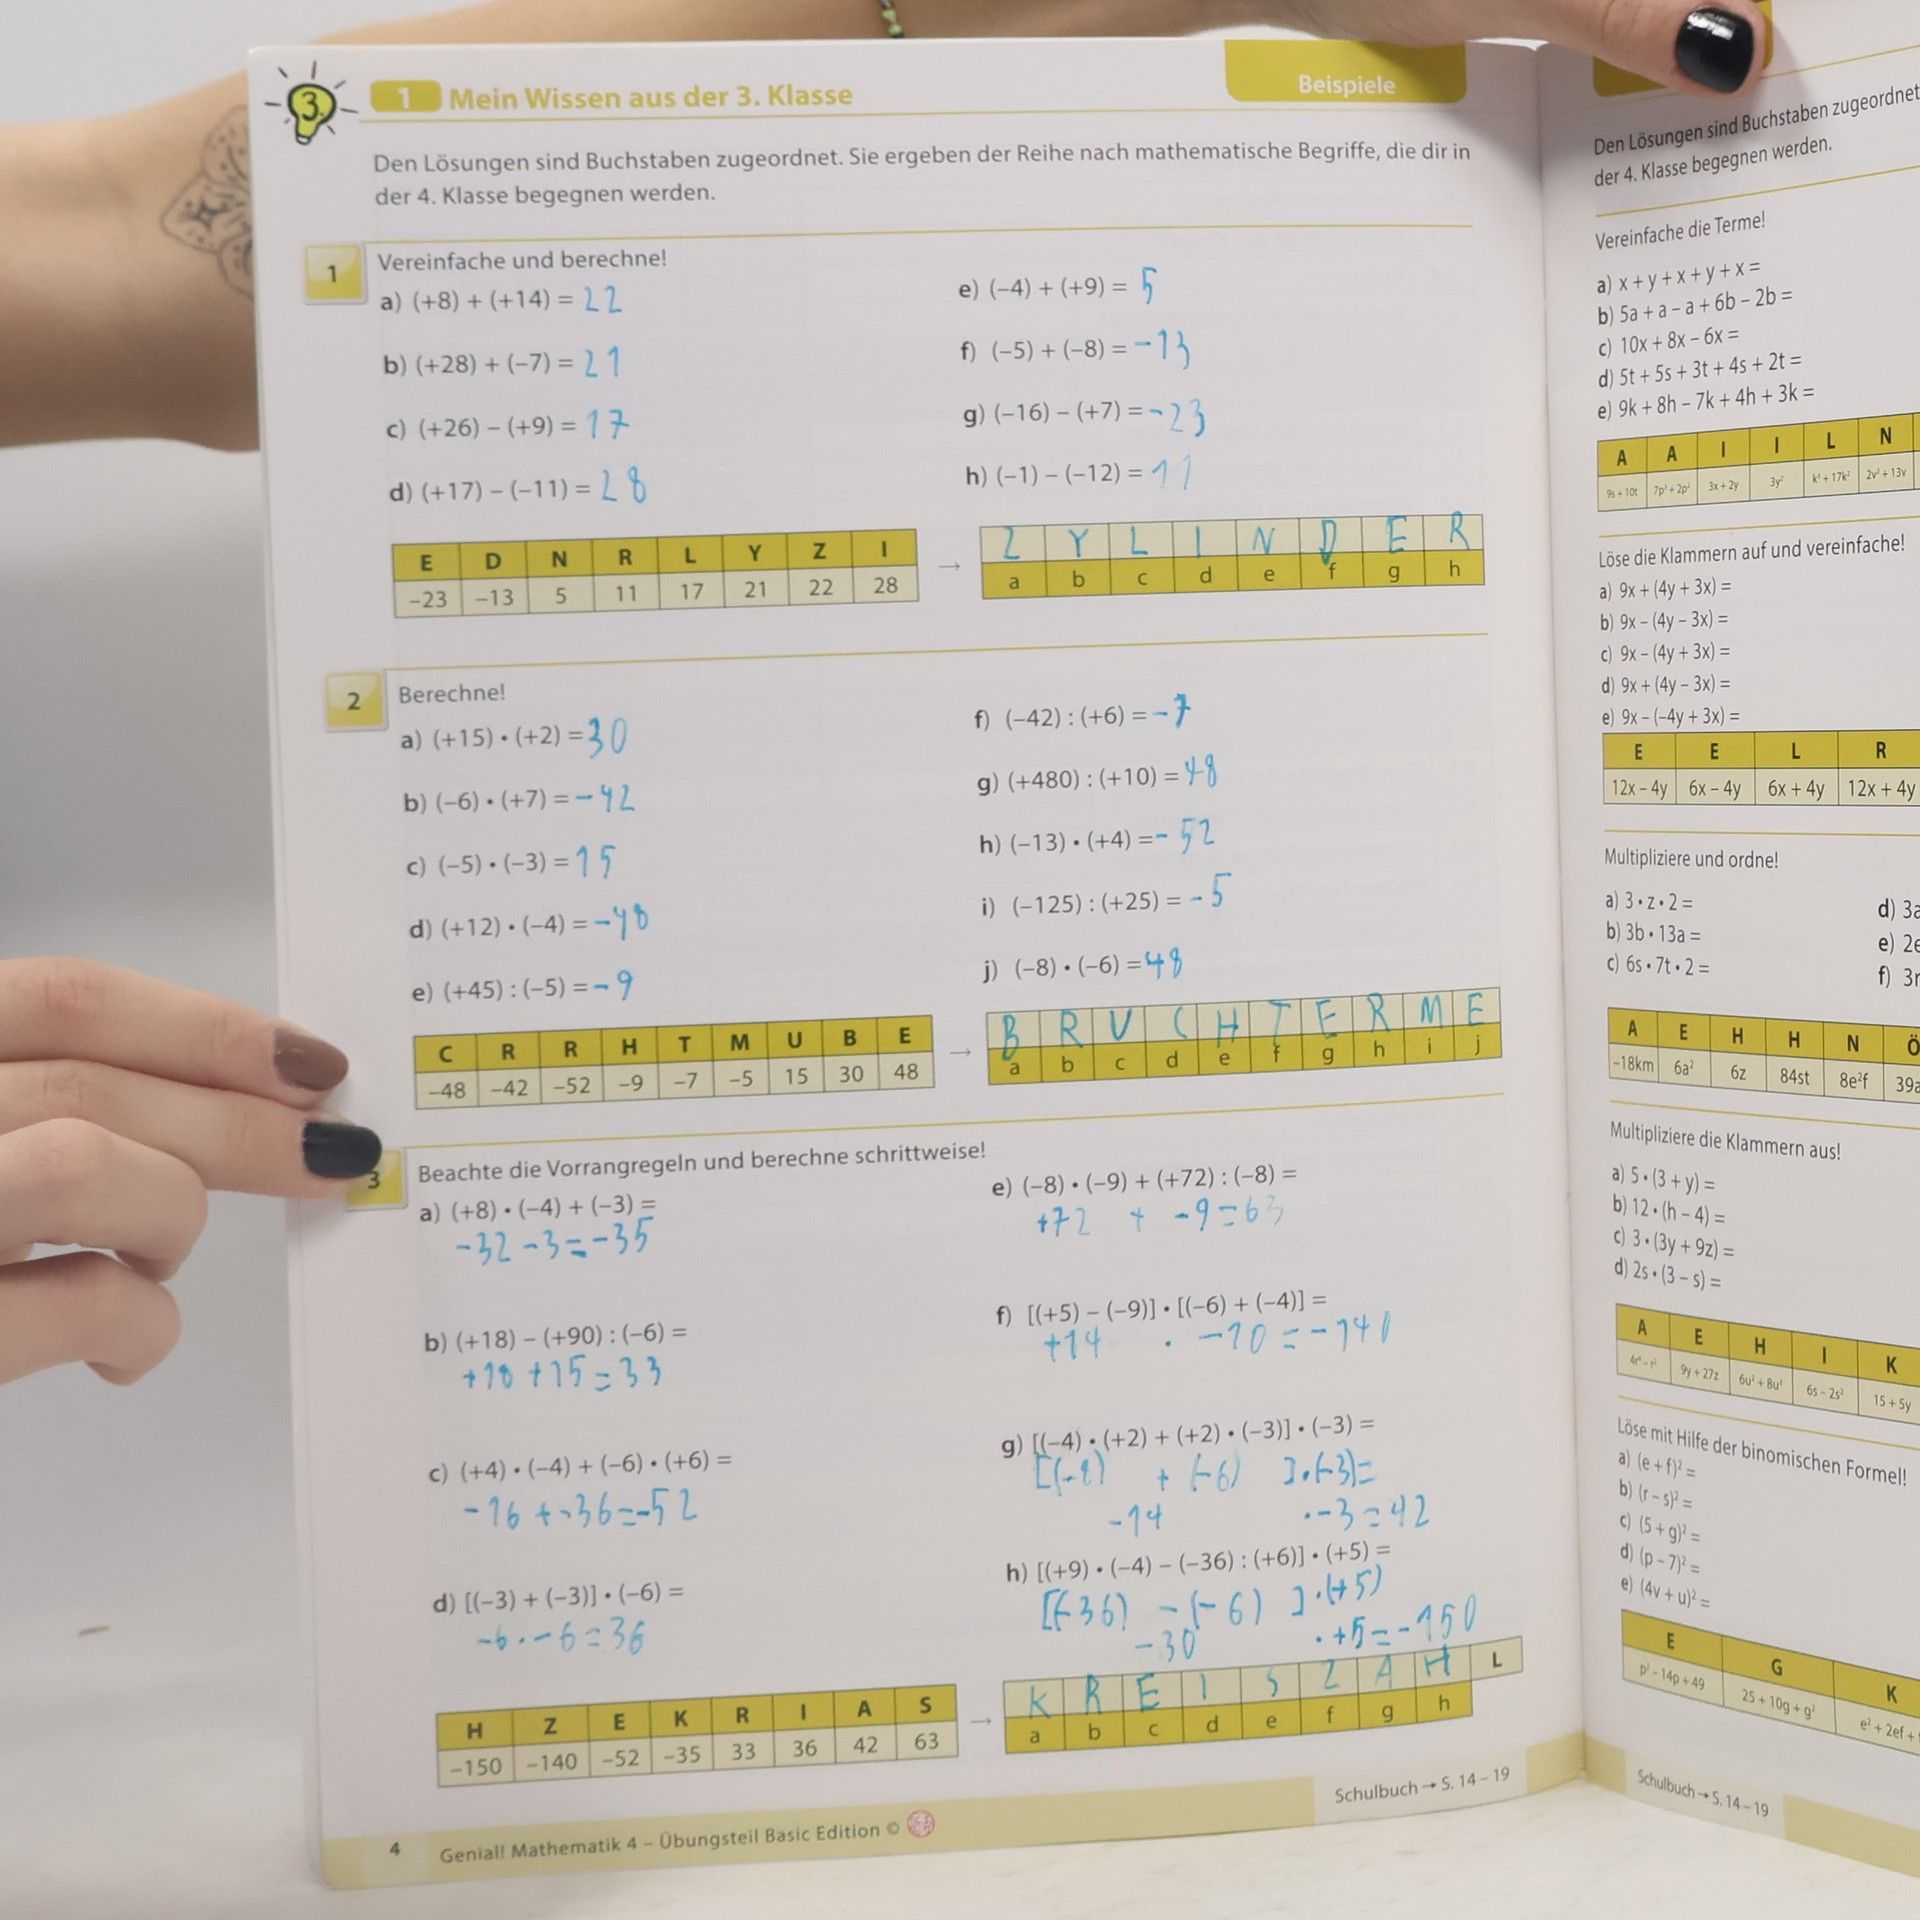 3.
1 Mein Wissen aus der 3. Klasse
Beispiele
Den Lösungen sind Buchstaben zugeordnet. Sie ergeben der Reihe nach mathematische Begriffe, die dir in
der 4. Klasse begegnen werden.
1 Vereinfache und berechne!
a) (+8) + (+14) = 22
b) (+28) + (−7) = 21
c) (+26) − (+9) = 17
d) (+17) − (−11) = 28
e) (−4) + (+9) = 5
f) (−5) + (−8) = −13
g) (−16) − (+7) = −23
h) (−1) − (−12) = 11
E D N R L Y Z I
−23 −13 5 11 17 21 22 28
→
Z Y L I N D E R
a b c d e f g h
2 Berechne!
a) (+15) • (+2) = 30
b) (−6) • (+7) = −42
c) (−5) • (−3) = 15
d) (+12) • (−4) = −48
e) (+45) : (−5) = −9
f) (−42) : (+6) = −7
g) (+480) : (+10) = 48
h) (−13) • (+4) = −52
i) (−125) : (+25) = −5
j) (−8) • (−6) = 48
C R R H T M U B E
−48 −42 −52 −9 −7 −5 15 30 48
→
B R U C H T E R M E
a b c d e f g h i j
3 Beachte die Vorrangregeln und berechne schrittweise!
a) (+8) • (−4) + (−3) =
−32 −3 = −35
b) (+18) − (+90) : (−6) =
+18 +15 = 33
c) (+4) • (−4) + (−6) • (+6) =
−16 + −36 = −52
d) [(−3) + (−3)] • (−6) =
−6 · −6 = 36
e) (−8) • (−9) + (+72) : (−8) =
+72 + −9 = 63
f) [(+5) − (−9)] • [(−6) + (−4)] =
+14 · −10 = −140
g) [(−4) • (+2) + (+2) • (−3)] • (−3) =
[(−8) + (−6) ] · (−3) =
−14 · −3 = 42
h) [(+9) • (−4) − (−36) : (+6)] • (+5) =
[(−36) − (−6) ] · (+5)
−30 · +5 = −150
H Z E K R I A S
−150 −140 −52 −35 33 36 42 63
→
K R E I S Z A H L
a b c d e f g h
Schulbuch → S. 14 – 19
4 Genial! Mathematik 4 – Übungsteil Basic Edition ©
Den Lösungen sind Buchstaben zugeordnet
der 4. Klasse begegnen werden.
Vereinfache die Terme!
a) x + y + x + y + x =
b) 5a + a − a + 6b − 2b =
c) 10x + 8x − 6x =
d) 5t + 5s + 3t + 4s + 2t =
e) 9k + 8h − 7k + 4h + 3k =
A A I I L N
9s + 10t 7p³ + 2p² 3x + 2y 3y² k³ + 17k² 2v² + 13v
Löse die Klammern auf und vereinfache!
a) 9x + (4y + 3x) =
b) 9x − (4y − 3x) =
c) 9x − (4y + 3x) =
d) 9x + (4y − 3x) =
e) 9x − (−4y + 3x) =
E E L R
12x − 4y 6x − 4y 6x + 4y 12x + 4y
Multipliziere und ordne!
a) 3 • z • 2 =
b) 3b • 13a =
c) 6s • 7t • 2 =
d) 3a
e) 2e
f)
A E H H N Ö
−18km 6a² 6z 84st 8e²f 39a
Multipliziere die Klammern aus!
a) 5 • (3 + y) =
b) 12 • (h − 4) =
c) 3 • (3y + 9z) =
d) 2s • (3 − s) =
A E H I K
9y + 27z 6u² + 8u³ 6s − 2s² 15 + 5y
Löse mit Hilfe der binomischen Formel!
a) (e + f)² =
b) (r − s)² =
c) (5 + g)² =
d) (p − 7)² =
e) (4v + u)² =
E G K
p² − 14p + 49 25 + 10g + g² e² + 2ef +
Schulbuch → S. 14 – 19